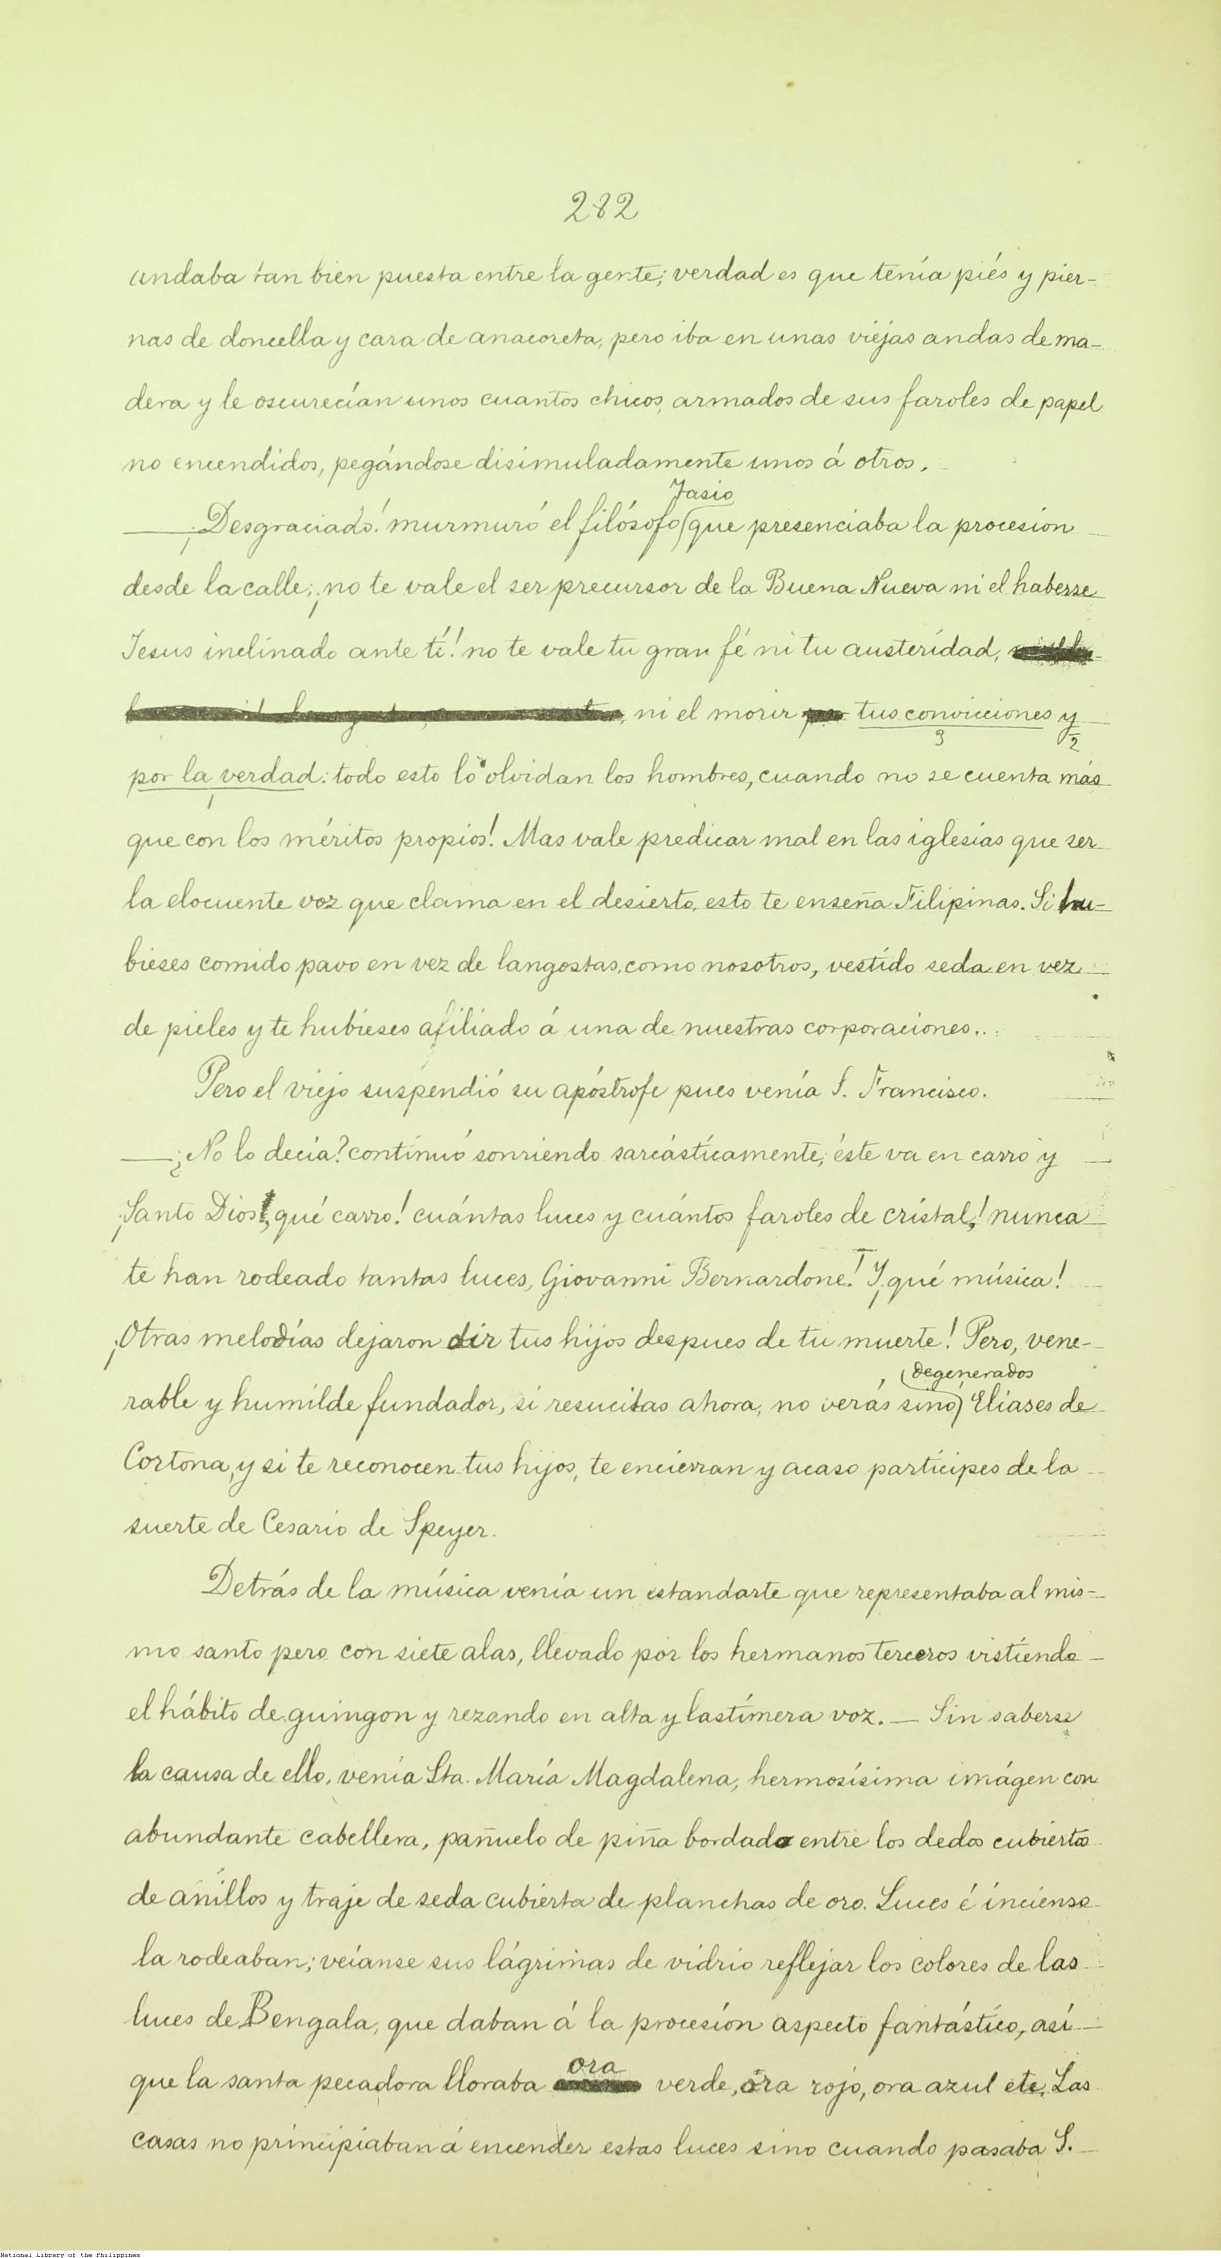 282
andaba tan bien puesta entre la gente; verdad es que tenía piés y pier-
nas de doncella y cara de anacoreta, pero iba en unas viejas andas de ma-
dera y le oscurecían unos cuantos chicos, armados de sus faroles de papel
no encendidos, pegándose disimuladamente unos á otros.
Tasio
— ¡Desgraciado! murmuró el filósofo que presenciaba la procesion
desde la calle; ¡no te vale el ser precursor de la Buena Nueva ni el haberse
Jesus inclinado ante tí! no te vale tu gran fé ni tu austeridad,
ni el morir tus convicciones y
3 2
por la verdad: todo esto lo olvidan los hombres, cuando no se cuenta más
1
que con los méritos propios! Mas vale predicar mal en las iglesias que ser
la elocuente voz que clama en el desierto, esto te enseña Filipinas. Si hu-
bieses comido pavo en vez de langostas, como nosotros, vestido seda en vez
de pieles y te hubieses afiliado á una de nuestras corporaciones...
Pero el viejo suspendió su apóstrofe pues venía S. Francisco.
— ¿No lo decía? continuó sonriendo sarcásticamente; éste va en carro y
¡Santo Dios! qué carro! cuántas luces y cuántos faroles de cristal! nunca
te han rodeado tantas luces, Giovanni Bernardone! Y ¡qué música!
¡Otras melodías dejaron oir tus hijos despues de tu muerte! Pero, vene-
degenerados
rable y humilde fundador, si resucitas ahora, no verás sinó Eliases de
Cortona, y si te reconocen tus hijos, te encierran y acaso partícipes de la
suerte de Cesario de Speyer.
Detrás de la música venía un estandarte que representaba al mis-
mo santo pero con siete alas, llevado por los hermanos terceros vistiendo
el hábito de guingon y rezando en alta y lastímera voz. — Sin saberse
la causa de ello, venía Sta. María Magdalena, hermosísima imágen con
abundante cabellera, pañuelo de piña bordado entre los dedos cubiertos
de anillos y traje de seda cubierta de planchas de oro. Luces é incienso
la rodeaban; veíanse sus lágrimas de vidrio reflejar los colores de las
luces de Bengala, que daban á la procesión aspecto fantástico, así
ora
que la santa pecadora lloraba verde, ora rojo, ora azul etc. Las
casas no principiaban á encender estas luces sino cuando pasaba S.
National Library of the Philippines